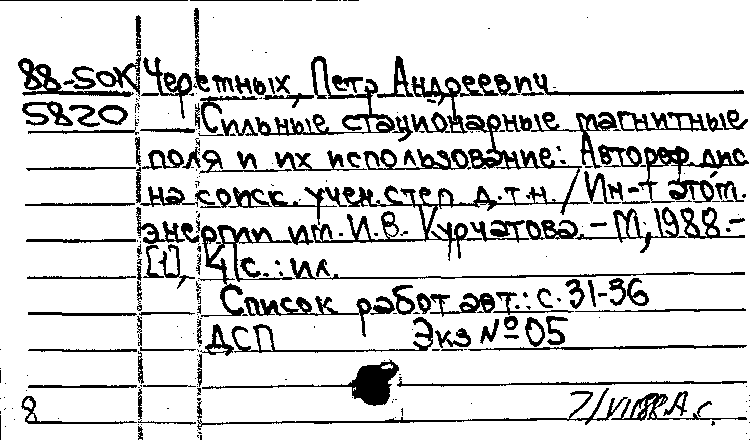 88-50К Черетных, Петр Андреевич
5820 Сильные стационарные магнитные
поля и их использование: Автореф. дис
на соиск. учен. степ д.т.н. / Ин-т атом.
энергии им. И.В. Курчатова. - М, 1988. -
[1], 41с.: ил.
Список работ авт.: с. 31-36
ДСП Экз № 05
8